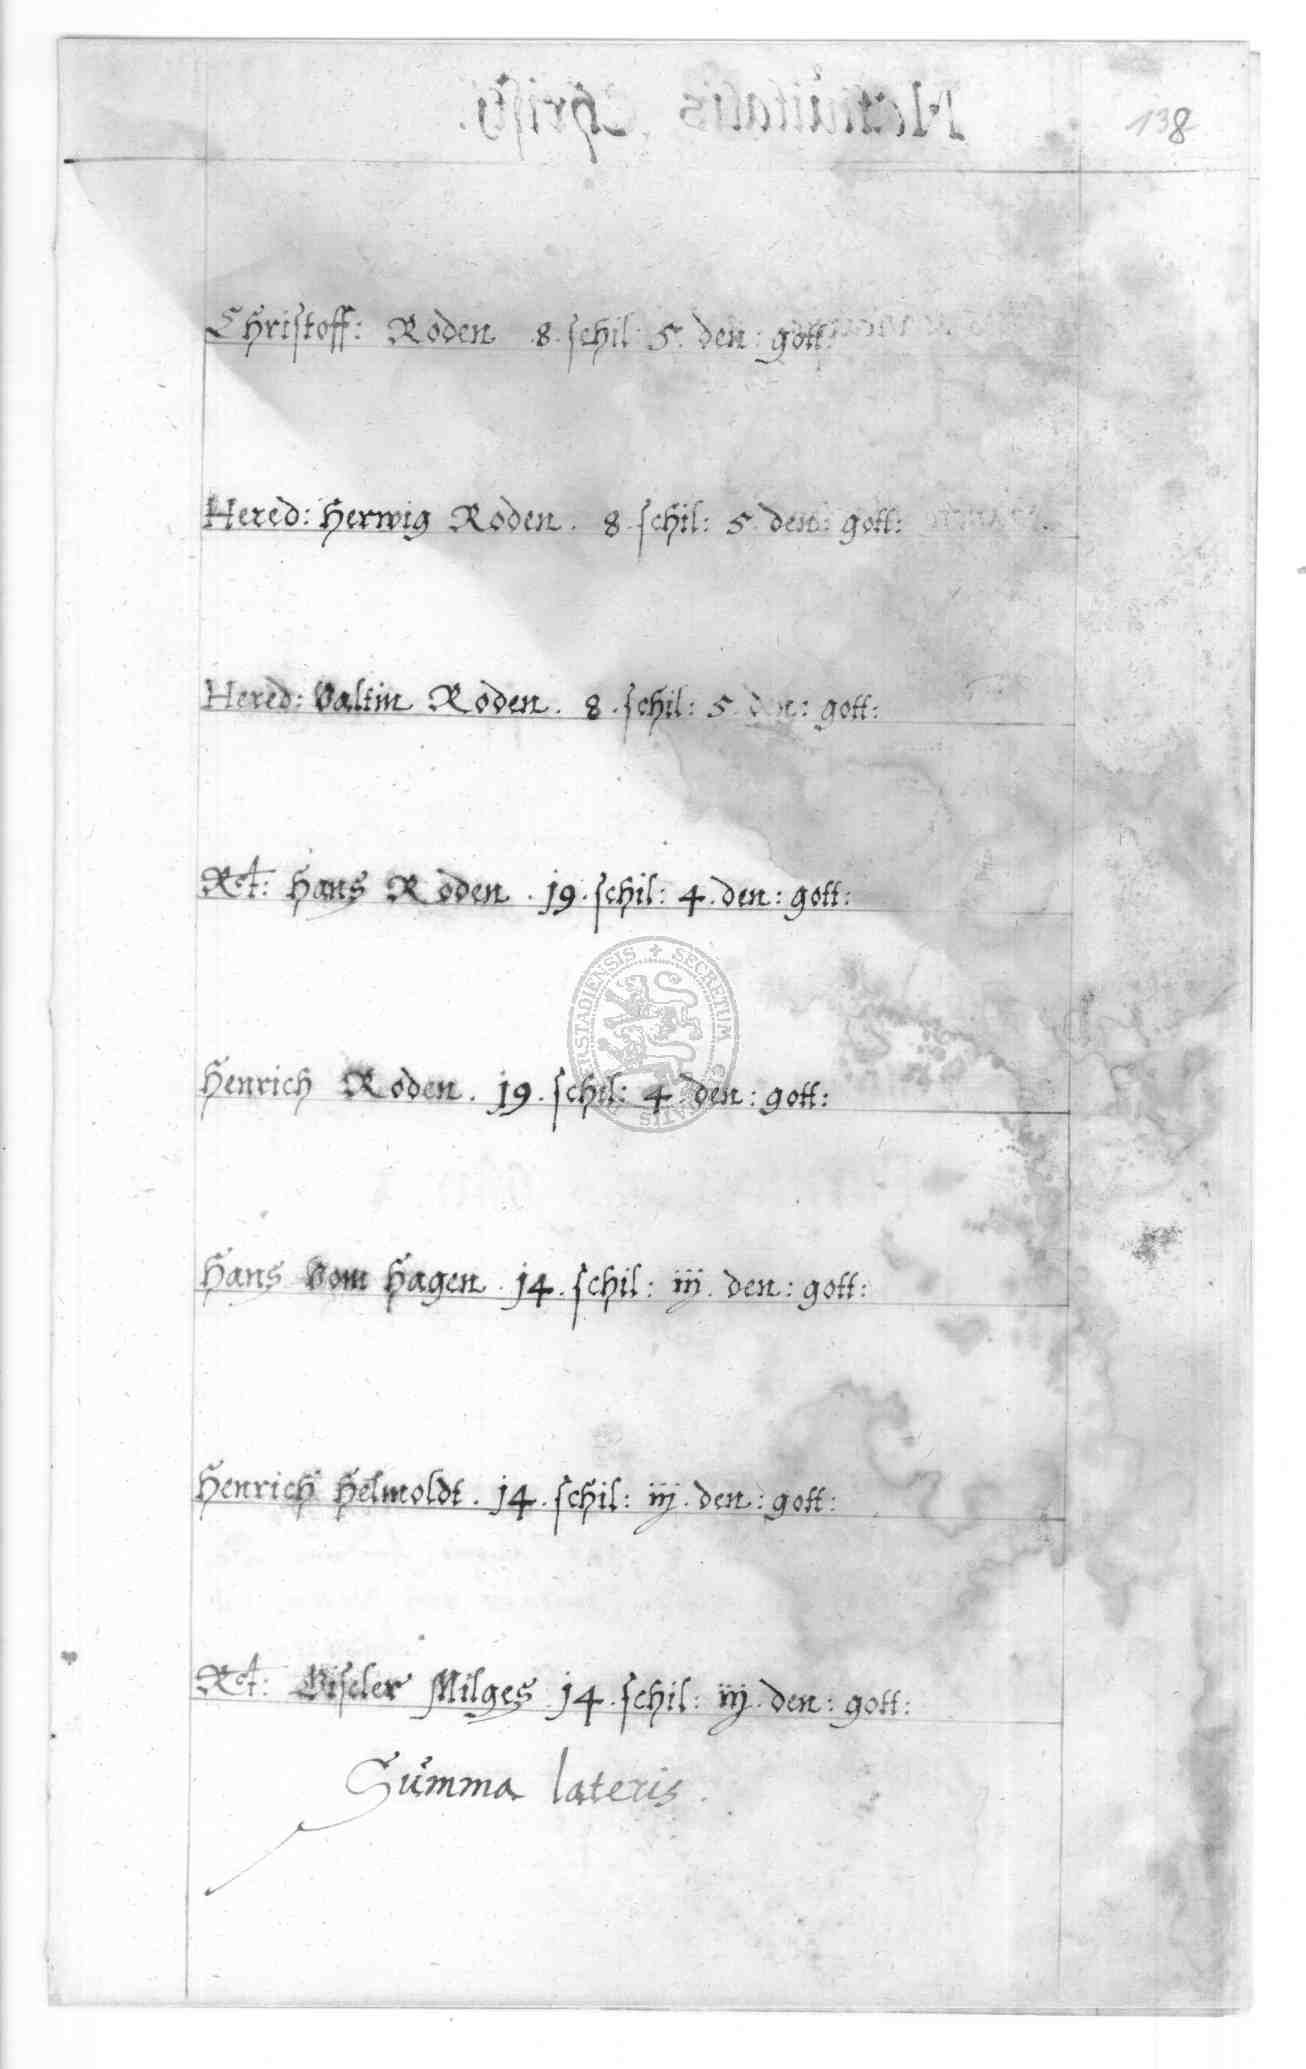 138
Christoff: Roden 8. schil: 5. den: gott:
Hered: Herwig Roden. 8. schil: 5. den: gott:
Hered: Valtin Roden. 8. schil: 5. den: gott:
Rct: Hans Roden. 19. schil: 4. den: gott:
SECRETUM
Henrich Roden. 19. schil: 4. den: gott:
Hans Vom Hagen. 14. schil: iij. den: gott:
Henrich Helmoldt. 14. schil: iij. den: gott:
Rct: Giseler Milges 14. schil: iij. den: gott:
Summa lateris.